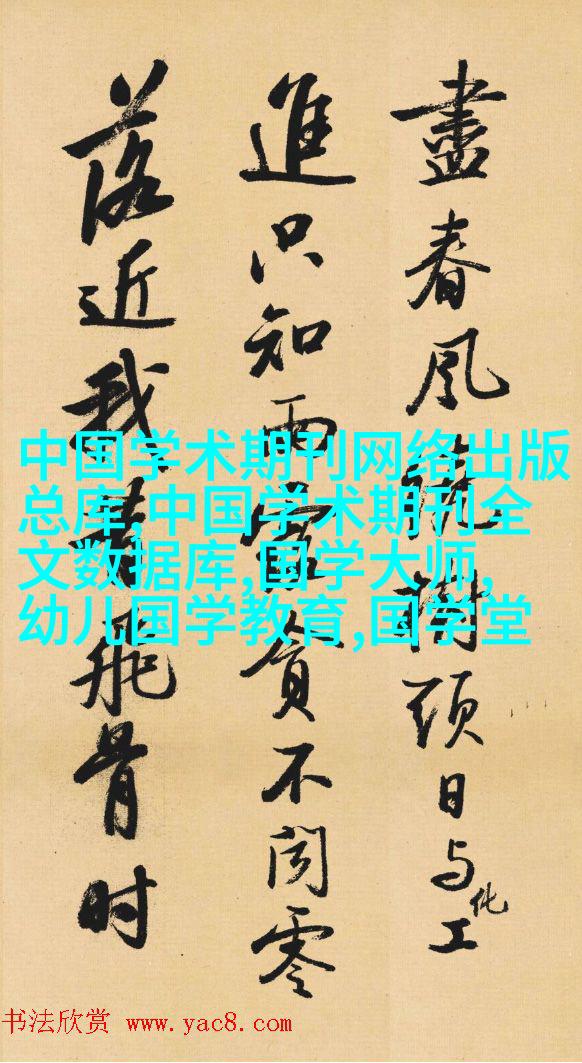 盡春風繞樹頭日与化工
進只知雨露貪不聞零
落近我昔飛骨时
中国学术期刊网络出版
总库,中国学术期刊全
文数据库,国学大师,
幼儿国学教育,国学堂
书法欣赏 www.yac8.com